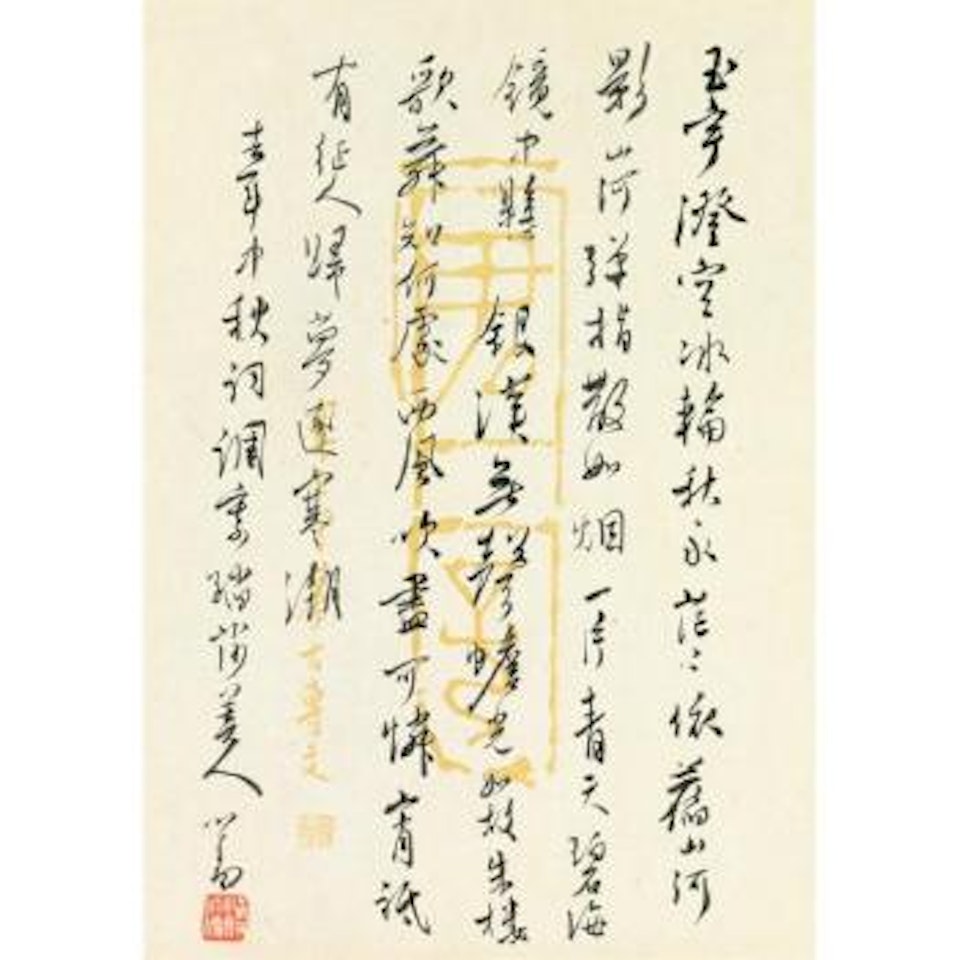 玉宇澄空冰輪秋永茫々依舊山河
影山河彈指散如烟一片青天碧海
鏡中懸 銀漢無聲蟾光如故朱樓
歌舞知何處西風吹盡可憐宵祗
有征人歸夢寒潮
去年中秋詞調寄踏莎美人 心畬